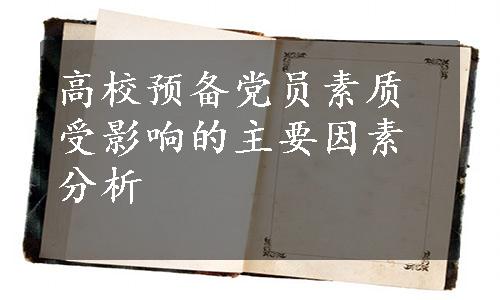 高校预备党员素质
受影响的主要因素
分析